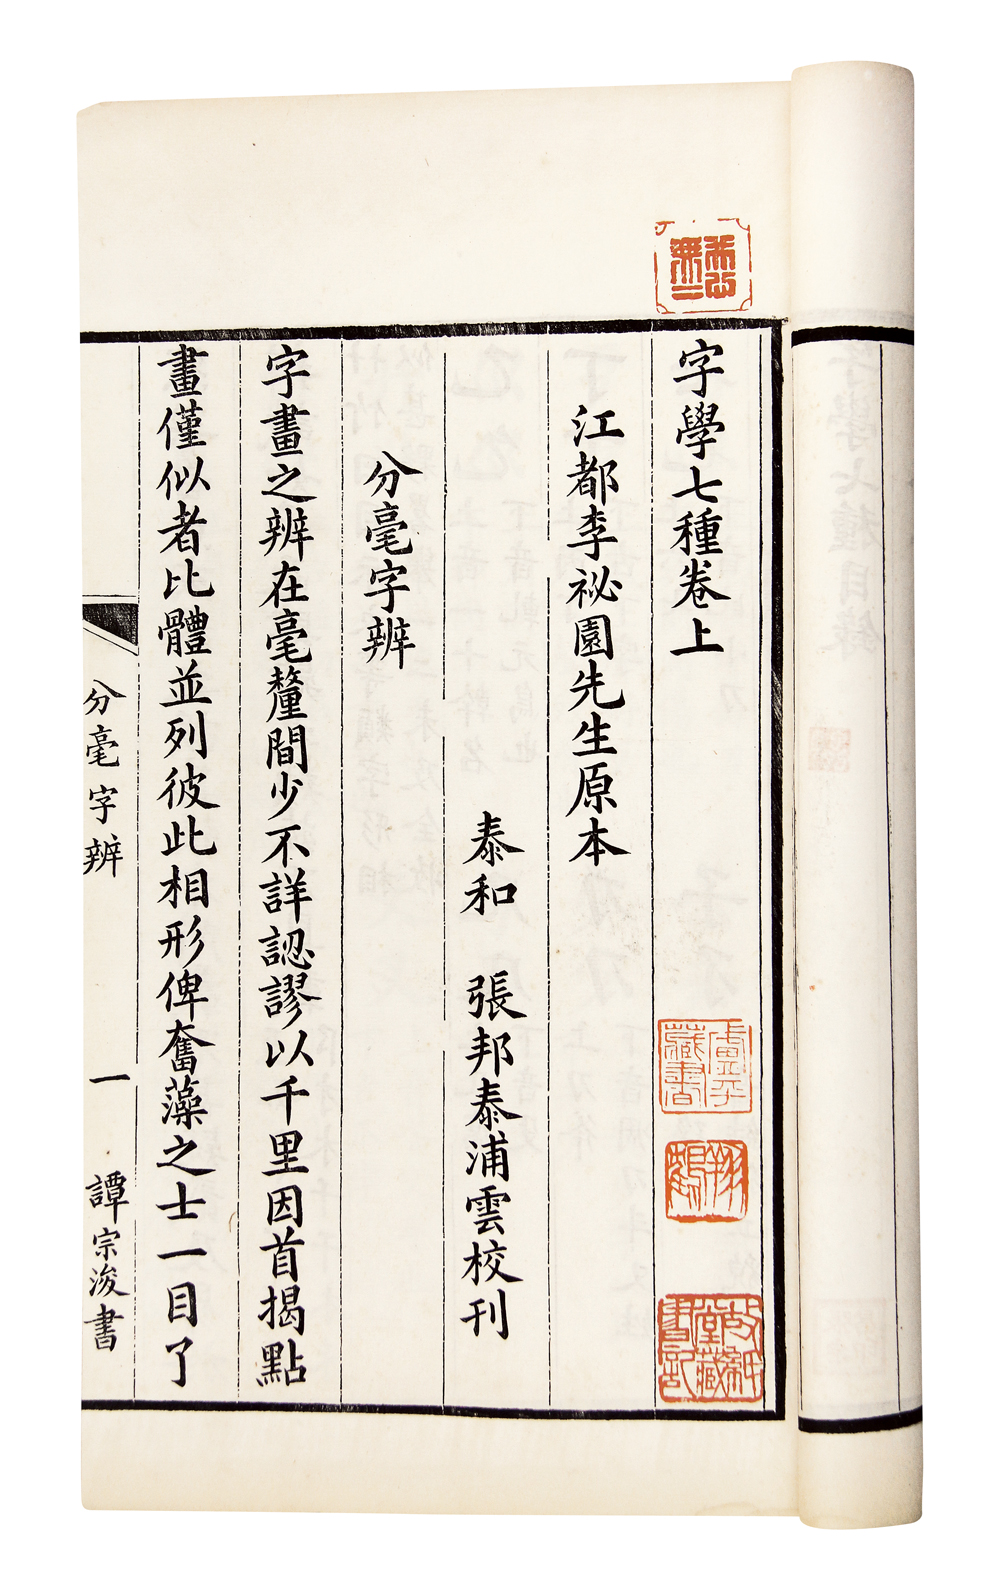 字學七種卷上
江都李祕園先生原本
泰和　張邦泰浦雲校刊
分毫字辨
字畫之辨在毫釐間少不詳認謬以千里因首揭點
畫僅似者比體並列彼此相形俾奮藻之士一目了
分毫字辨　一　譚宗浚書
盧平藏書
故紙堂藏書記
字學七種目錄